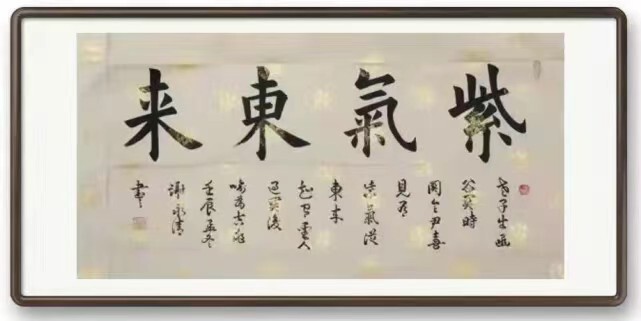 紫氣東来
老子出函
谷関時
関令尹喜
見有
紫氣從
東来
聖人
後
喻為吉祥
壬辰孟冬
謝永清
書